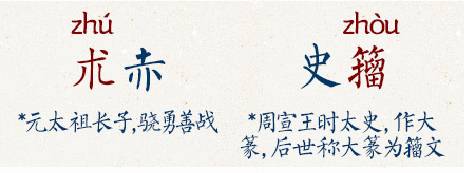 zhú
朮赤
*元太祖长子,骁勇善战
zhòu
史籀
*周宣王时太史,作大
篆,后世称大篆为籀文